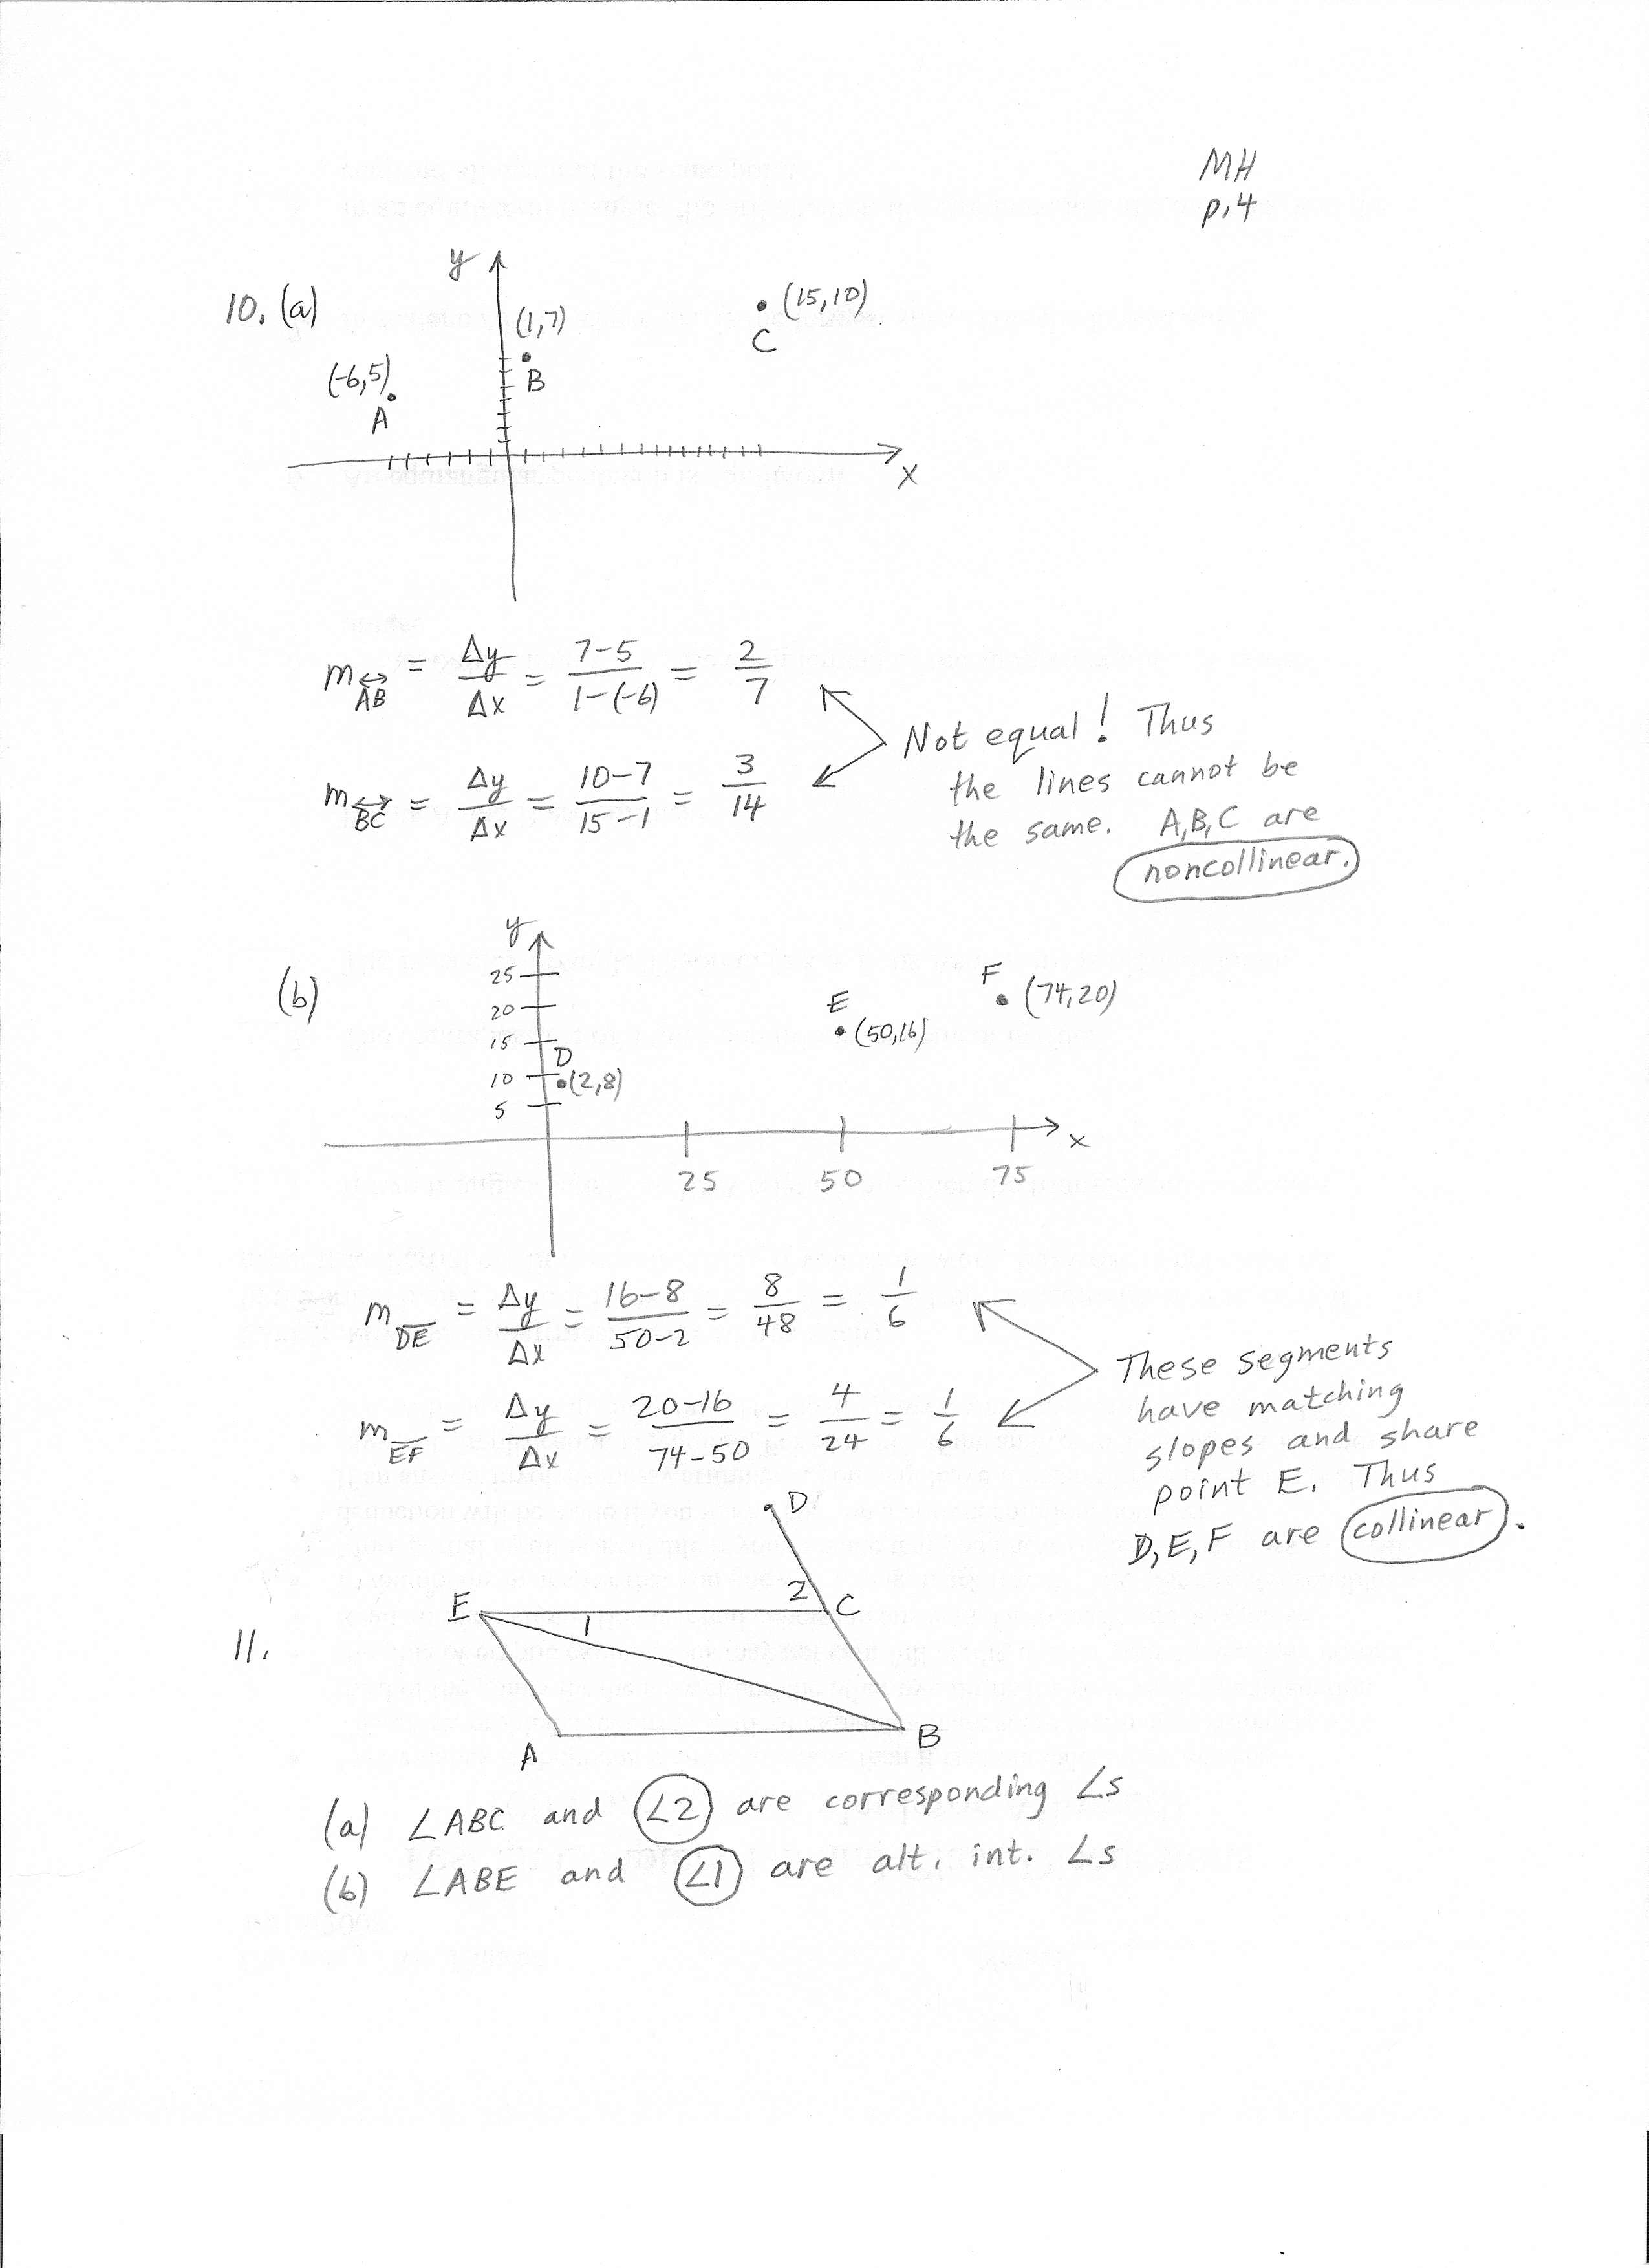 MH
p.4
10. (a)
y
(1,7)
B
(-6,5)
A
(15,10)
C
x
m_AB = Δy/Δx = (7-5)/(1-(-6)) = 2/7
m_BC = Δy/Δx = (10-7)/(15-1) = 3/14
Not equal! Thus
the lines cannot be
the same. A,B,C are
noncollinear.
(b)
y
25
20
15
10
5
D
(2,8)
E
(50,16)
F
(74,20)
x
25 50 75
m_DE = Δy/Δx = (16-8)/(50-2) = 8/48 = 1/6
m_EF = Δy/Δx = (20-16)/(74-50) = 4/24 = 1/6
These segments
have matching
slopes and share
point E. Thus
D,E,F are collinear.
11.
D
2
E
C
1
A
B
(a) ∠ABC and ∠2 are corresponding ∠s
(b) ∠ABE and ∠1 are alt. int. ∠s